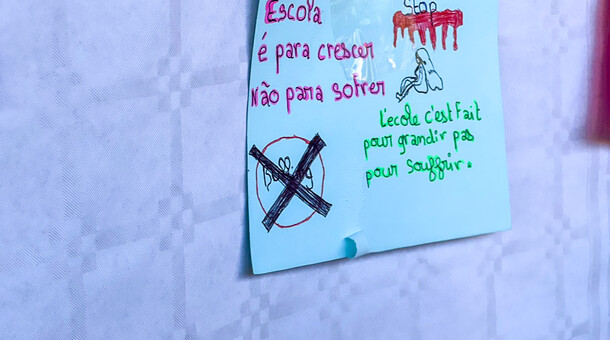 Escola
é para crescer
Não para sofrer
Stop
L'ecole c'est fait
pour grandir pas
pour souffrir.